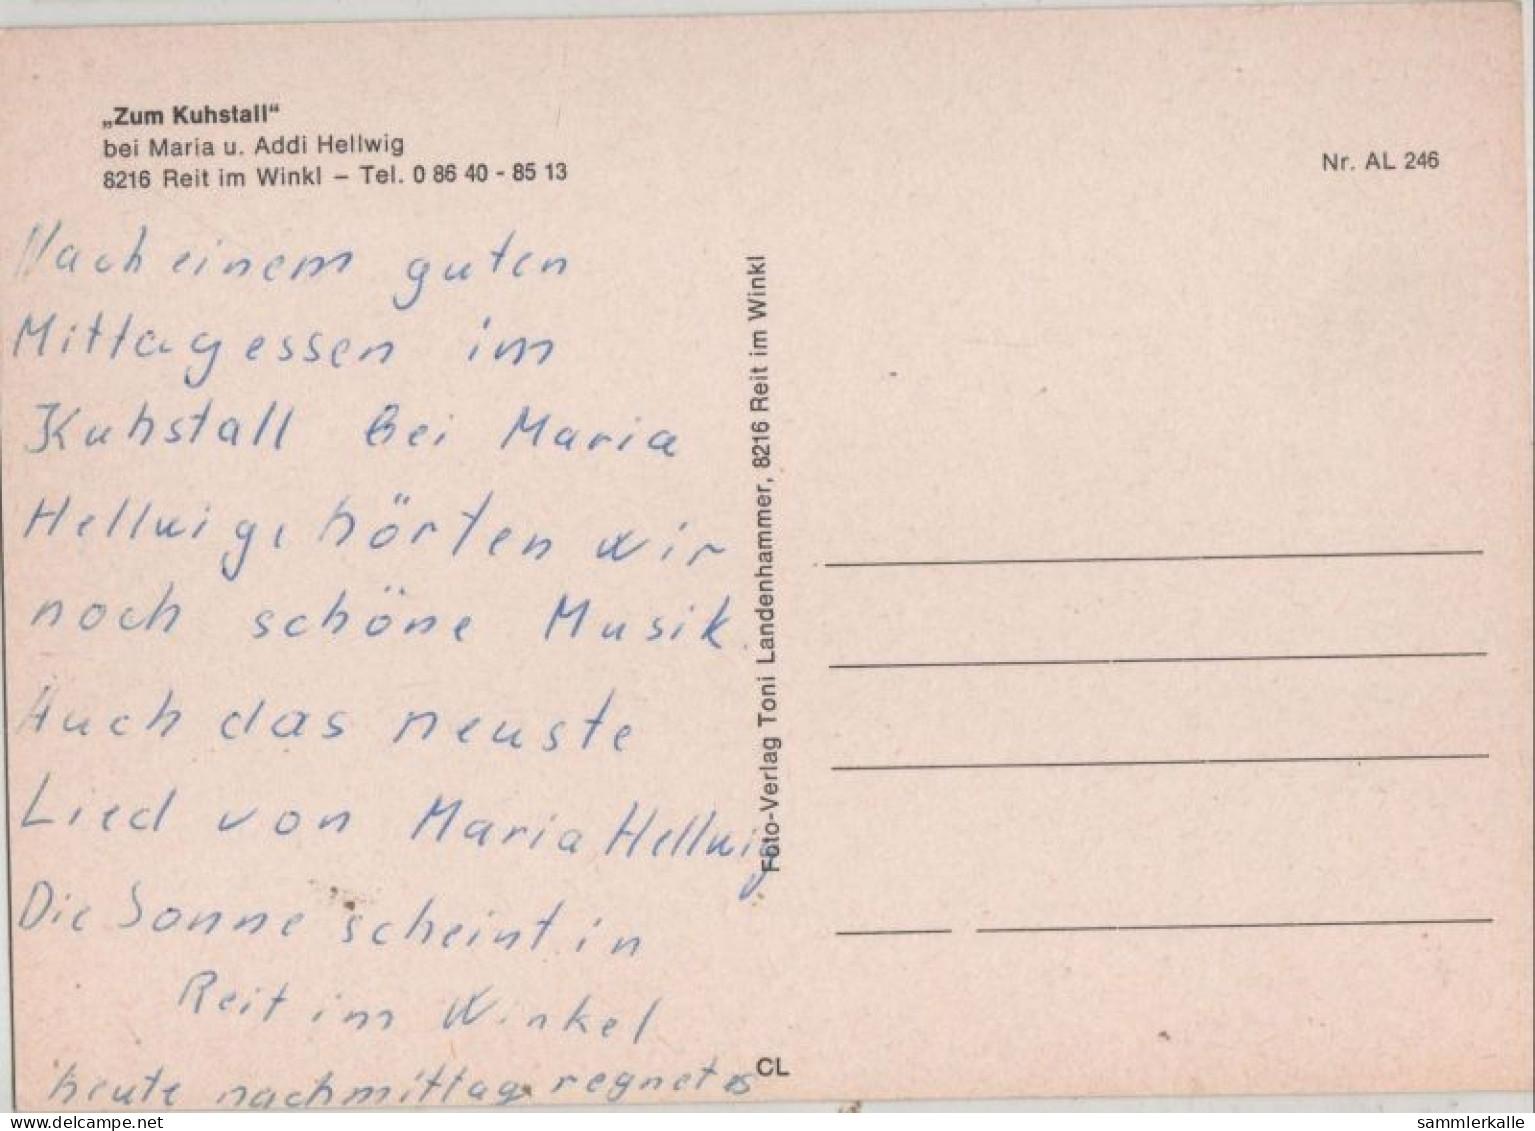 „Zum Kuhstall“
bei Maria u. Addi Hellwig
8216 Reit im Winkl – Tel. 0 86 40 - 85 13
Nr. AL 246
Nach einem guten
Mittagessen im
Kuhstall Bei Maria
Hellwig, hörten wir
noch schöne Musik.
Auch das neuste
Lied von Maria Hellwig
Die Sonne scheint in
Reit im Winkel
heute nachmittag regnet es
Foto-Verlag Toni Landenhammer, 8216 Reit im Winkl
CL
www.delcampe.net
sammlerkalle